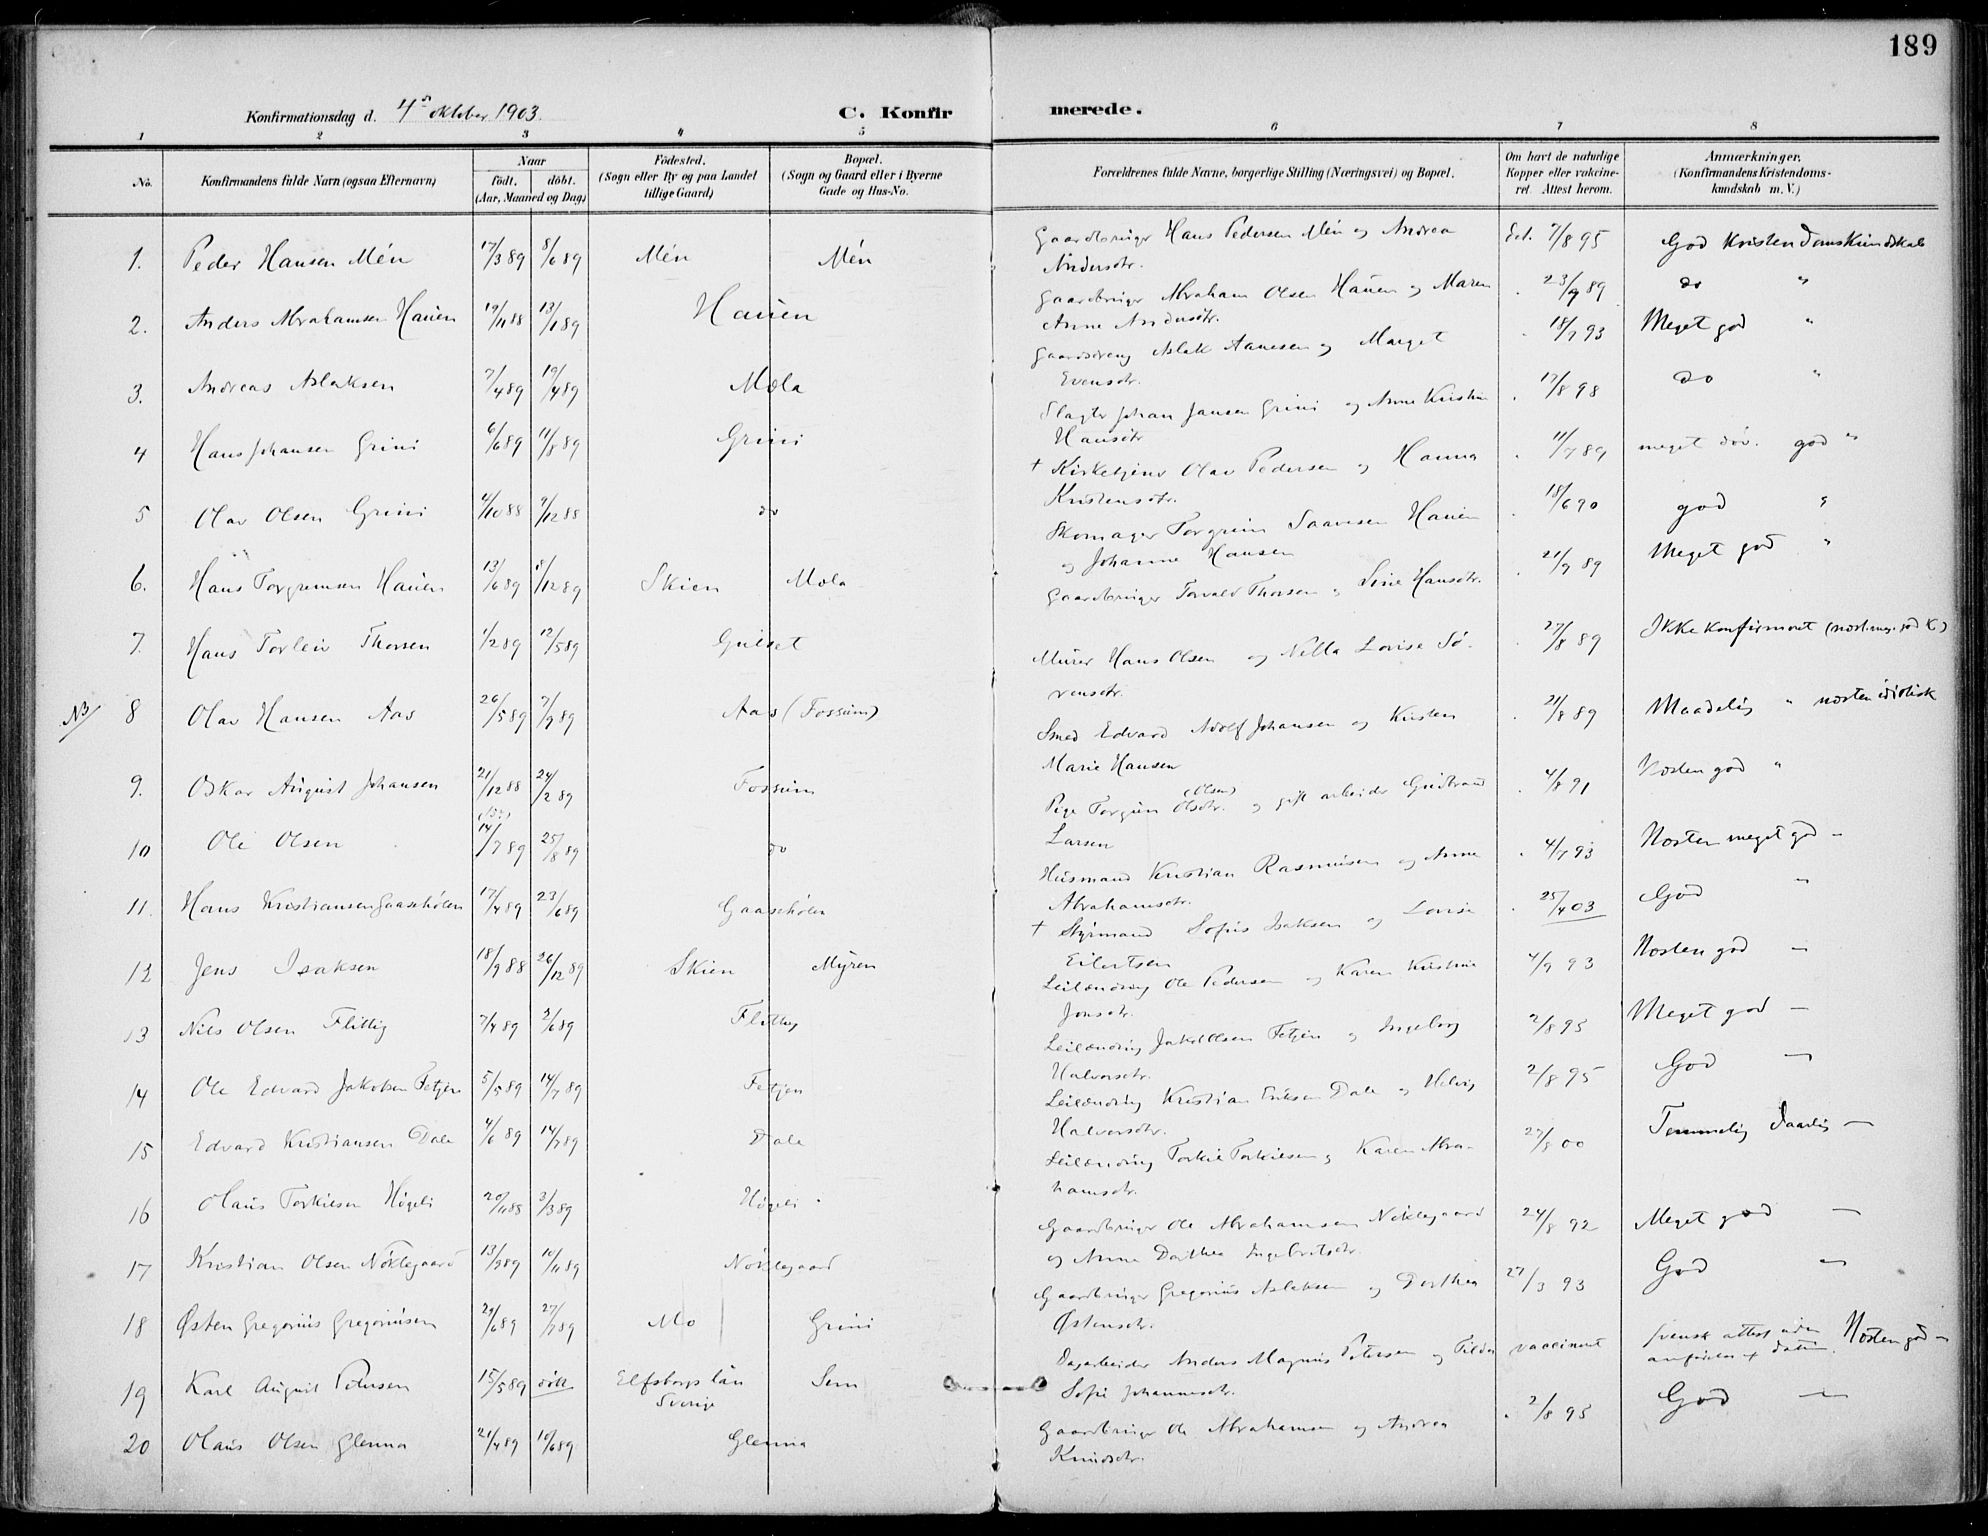 189
Konfirmationsdag d. 4de oktober 1903.
C. Konfirmerede.
1 2 3 4 5 6 7 8
No.
Konfirmandens fulde Navn (ogsaa Efternavn)
Naar
født. døbt.
(Aar, Maaned og Dag)
Fødested.
(Sogn eller By og paa Landet
tillige Gaard)
Bopæl.
(Sogn og Gaard eller i Byerne
Gade og Hus-No.
Forældrenes fulde Navne, borgerlige Stilling (Næringsvei) og Bopæl.
Om havt de naturlige
Kopper eller vakcine-
ret. Attest herom.
Anmærkninger.
(Konfirmandens Kristendoms-
kundskab m. V.)
1. Peder Hansen Mén 17/3 89 8/6 89 Mén Mén Gaardbruger Hans Pedersen Mén og Andrea 7/8 95 God Kristendomskundskab
Andersdtr.
2. Anders Abrahamsen Hauen 19/11 88 13/1 89 Hauen Gaardbruger Abraham Olsen Hauen og Maren 23/9 89 do "
Anne Andersdtr.
3. Andreas Aslaksen 7/4 89 19/4 89 Mæla Aslak Aanesen og Marget 18/7 93 Meget god "
Evensdtr.
4 Hans Johansen Grini 6/6 89 11/8 89 Grini Slagter Johan Jansen Grini og Anne Kristine 17/8 98 do "
Hansdtr
5 Olav Olsen Grini 4/10 88 9/12 88 do + Kirketjener Olav Pedersen og Hanna 11/7 89 meget døv. god "
Kristensdtr.
6. Hans Torgrimsen Hauen 13/6 89 8/12 89 Skien Mæla Skomager Torgrim Saavesen Hauen 18/6 90 god "
og Johanne Hansen
7. Hans Torleiv Thorsen 1/2 89 12/5 89 Gulset Gaardbruger Torvald Thorsen og Sine Hansdtr. 21/9 89 Meget god "
NB/ 8 Olav Hansen Aas 26/5 89 7/9 89 Aas (Fossum) Murer Hans Olsen og Nella Lovise Sø- 27/8 89 Ikke konfirmeret
rensdtr.
9. Oskar August Johansen 21/12 88 24/2 89 Fossum Smed Edvard Adolf Johansen og Kirsten 21/8 89 Maadelig " næsten idiotisk
Marie Hansen
10 Ole Olsen 14/7 89 25/8 89 do Pige Torgun Olsdtr. (Olsen) og gift arbeider Gudbrand 4/8 91 Næsten god "
Larsen
11. Hans Kristiansen Gaasehølen 17/4 89 23/6 89 Gaasehølen Husmand Kristian Rasmusen og Anne 4/7 93 Næsten meget god -
Abrahamsdtr.
12 Jens Isaksen 18/9 88 26/12 89 Skien Myren + Styrmand Sofus Isaksen og Lovise 25/4 03 God "
Eilertsen
13 Nils Olsen Flittig 7/4 89 2/6 89 Flittig Leilænding Ole Pedersen og Karen Kristine 4/9 93 Næsten god -
Jonsdtr.
14 Ole Edvard Jakobsen Fetjen 5/5 89 14/7 89 Fetjen Leilænding Jakob Olsen Fetjen og Ingeborg 2/8 95 Meget god -
Halvorsdtr.
15 Edvard Kristiansen Dale 4/6 89 14/7 89 Dale Leilænding Kristian Eriksen Dale og Helvig 2/8 95 God -
Halvorsdtr.
16 Olaus Torkilsen Høgeli 20/11 88 3/3 89 Høgeli Leilænding Torkil Torkilsen og Karen Abra- 27/8 00 Temmelig daarlig -
hamsdtr.
17 Kristian Olsen Nøklegaard 13/9 89 10/11 89 Nøklegaard Gaardbruger Ole Abrahamsen Nøklegaard 24/8 92 Meget god -
og Anne Dorthea Ingebretsdtr.
18 Østen Gregorius Gregoriusen 29/6 89 27/7 89 Mo Grini Gaardbruger Gregorius Aslaksen og Dorthea 27/3 93 God -
Østensdtr.
19 Karl August Petersen 15/5 89 døbt Elfsborgs län Sem Dagarbeider Anders Magnus Petersen og Tilda vaccineret svensk attest uden Næsten god -
Sverige Sofie Johannesdtr. anførelse af datum.
20 Olaus Olsen Glenna 21/4 89 10/6 89 Glenna Gaardbruger Ole Abrahamsen og Andrea 2/8 95 God -
Knudsdtr.